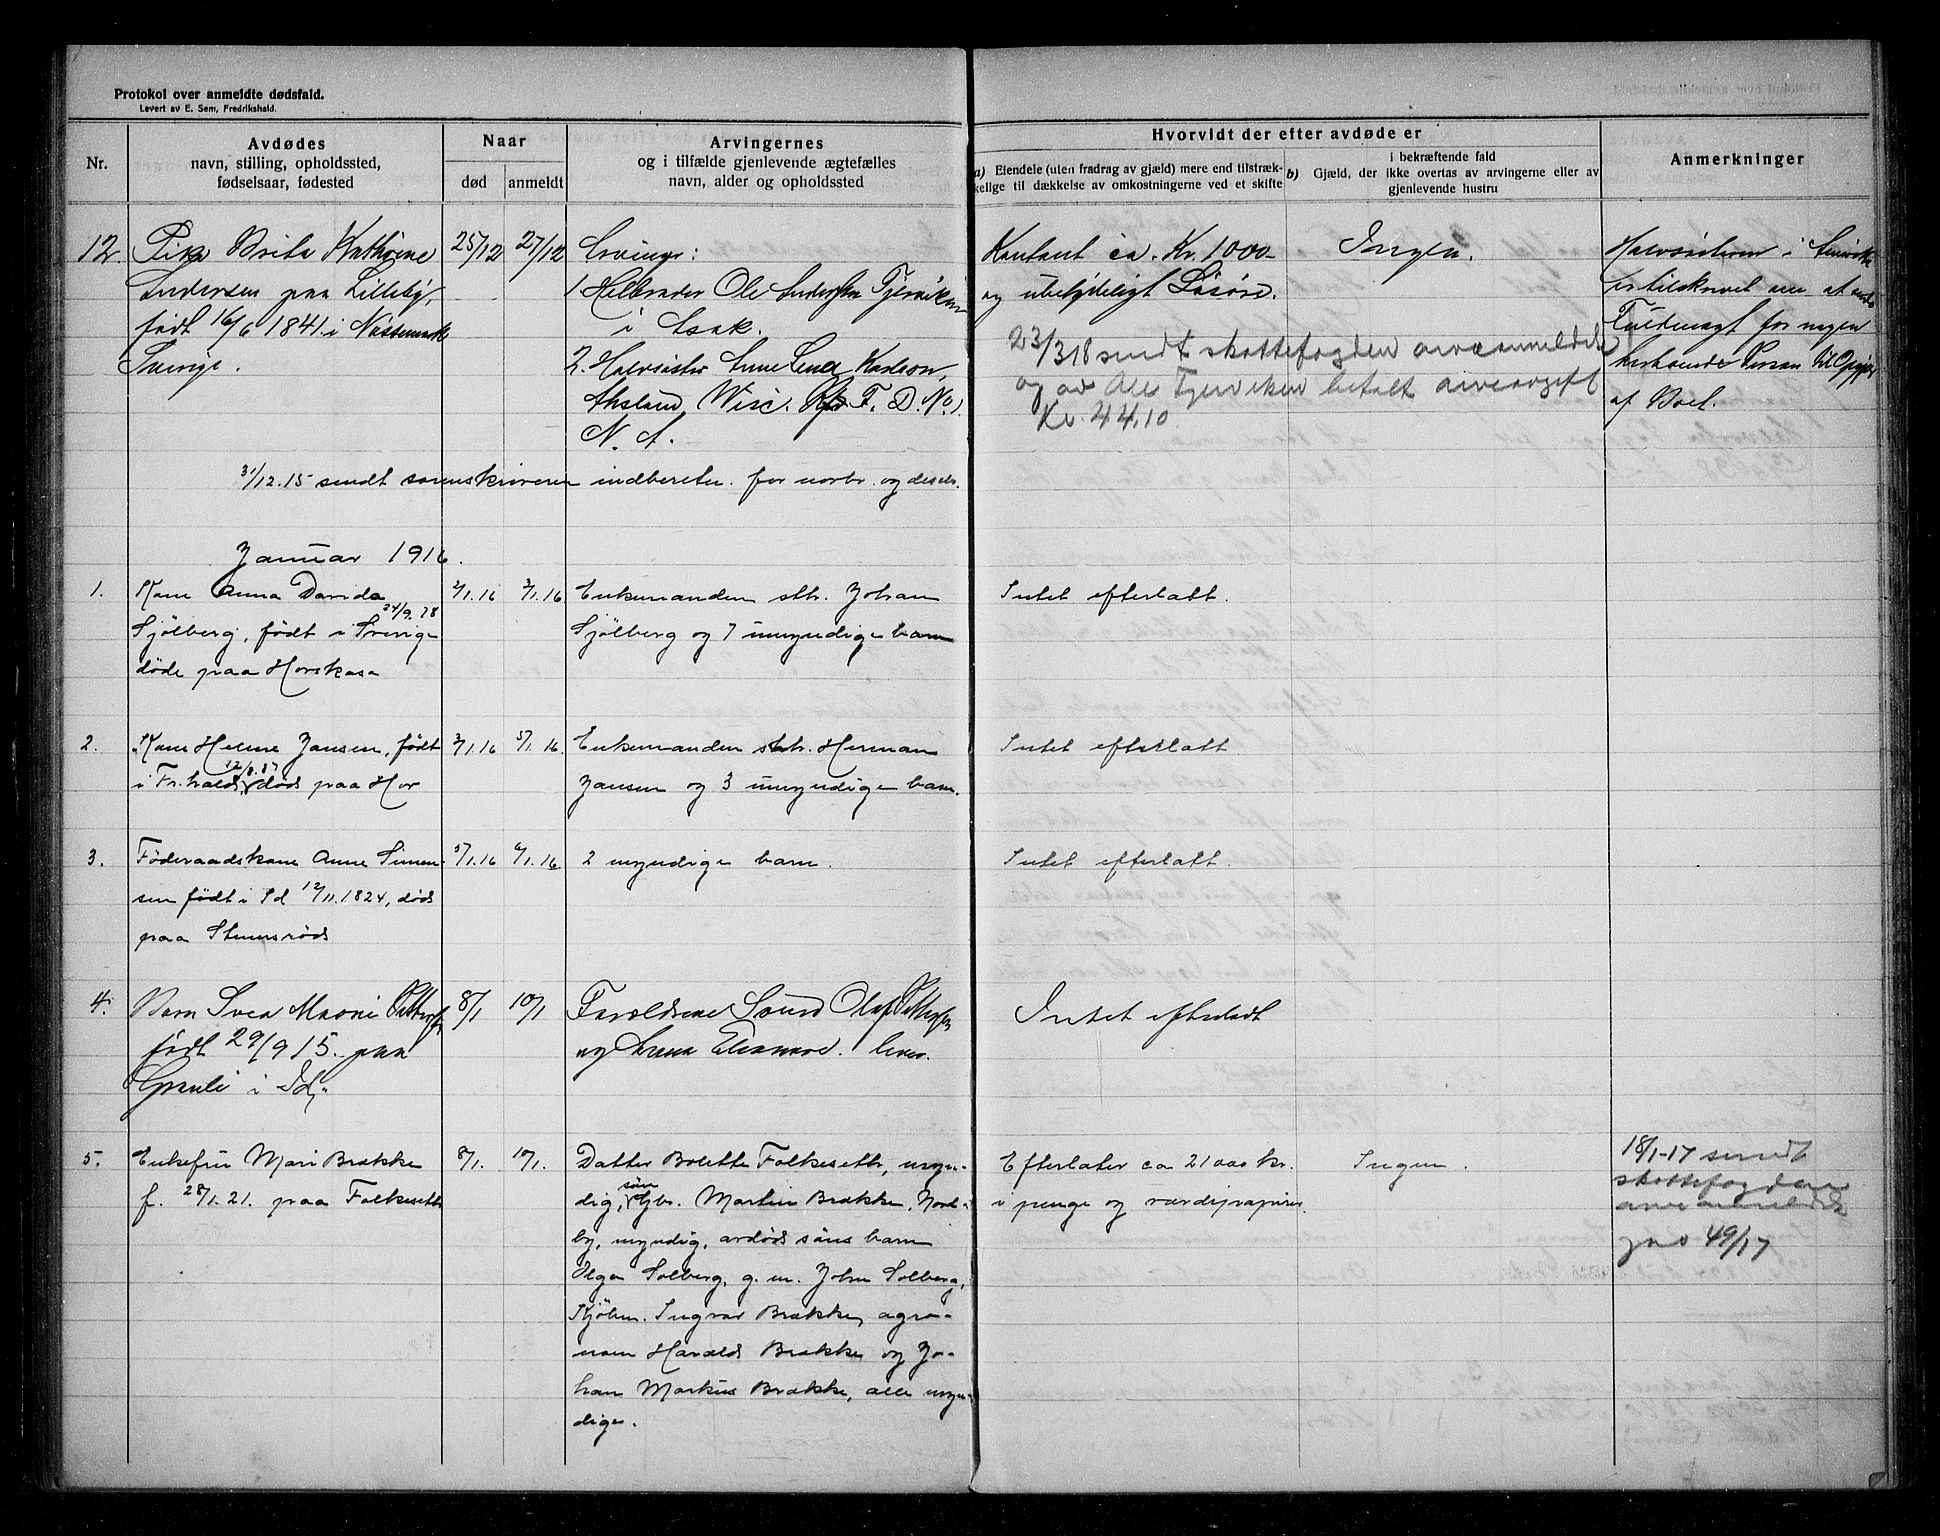 Protokol over anmeldte dødsfald.
Levert av E. Sem, Fredrikshald.
Nr.
Avdødes
navn, stilling, opholdssted,
fødselsaar, fødested
Naar
død
anmeldt
Arvingernes
og i tilfælde gjenlevende ægtefælles
navn, alder og opholdssted
Hvorvidt der efter avdøde er
a) Eiendele (uten fradrag av gjæld) mere end tilstræk-
kelige til dækkelse av omkostningerne ved et skifte
i bekræftende fald
b) Gjæld, der ikke overtas av arvingerne eller av
gjenlevende hustru
Anmerkninger
12. Pike Brita Kathrine
Andersen paa Lilleby,
født 16/6 1841. i
Sverige.
25/12 27/12
Arvinger:
1 Helbroder Ole Andersen Tjerviken
i Asak.
2. Halvsøster Anne Lena Karlson,
Ashland, Wisc. F. D. No 1
N. A.
Kontant ca. Kr. 1000-
og ubetydeligt Løsøre.
Ingen.
Halvsøsteren i Amerika
er tilskrevet om at
Fuldmagt for nogen
Person til Opgjør
af Boet.
23/3 18 sendt skattefogden arveanmeldelse
og av Ole Tjerviken betalt arveavgift
Kr. 44.10
31/12.15 sendt sorenskriveren indberetn. for novbr. og desbr.
Januar 1916.
1. Kone Anna Davida
24/9.78
Sjölberg, født i Sverige
døde paa Horskasa
2/1.16 3/1.16
Enkemanden sth. Johan
Sjölberg og 7 umyndige barn
Intet efterlatt.
2. Kone Helene Jansen, født
12/8.87
i Fr.hald, død paa Hov
3/1.16 5/1.16.
Enkemanden sth. Herman
Jansen og 3 umyndige barn.
Intet efterlatt
3. Föderaadskone Anne Simen-
sen født i Id 12/11.1824, død
paa Stumsröd
5/1.16 6/1.16
2 myndige barn.
Intet efterlatt.
4. Barn Svea Marie
født 29/9 15. paa
Grenli i Id.
8/1 10/1
Forældrene Olaf
og Anna Eleonore. lever.
Intet efterladt
5. Enkefru Mari Brække
f. 28/1.21. paa Folkeseth
8/1. 10/1.
Datter Bolette Folkeseth, myn-
sön
dig, Gbr. Martin Brække, Nord-
by, myndig, avdød söns barn
Olga Solberg, g. m. John Solberg,
Kjöbm. Ingvar Brække, agro-
nom Harald Brække og Jo-
han Markus Brække, alle myn-
dige.
Efterlater ca 21000 kr.
i penge og værdipapirer.
Ingen.
18/1-17 sendt
skattefogden
arveanmeldelse
jno 49/17